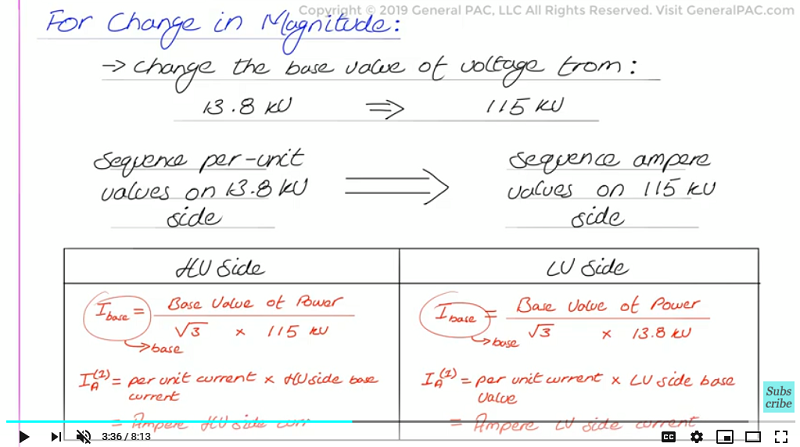 Copyright © 2019 General PAC, LLC All Rights Reserved. Visit GeneralPAC.com
For Change in Magnitude:
→ Change the base value of voltage from:
13.8 kV ⇒ 115 kV
Sequence per-unit
values on 13.8 kV
side
⇒
Sequence ampere
values on 115 kV
side
HV side
I base = Base Value of Power
√3 × 115 kV
base
I_A^(1) = per unit current × HV side base
current
= Ampere HV side curr
LV side
I base = Base Value of Power
√3 × 13.8 kV
base
I_A^(1) = per unit current × LV side base
value
= Ampere LV side current
Subs
cribe
3:36 / 8:13